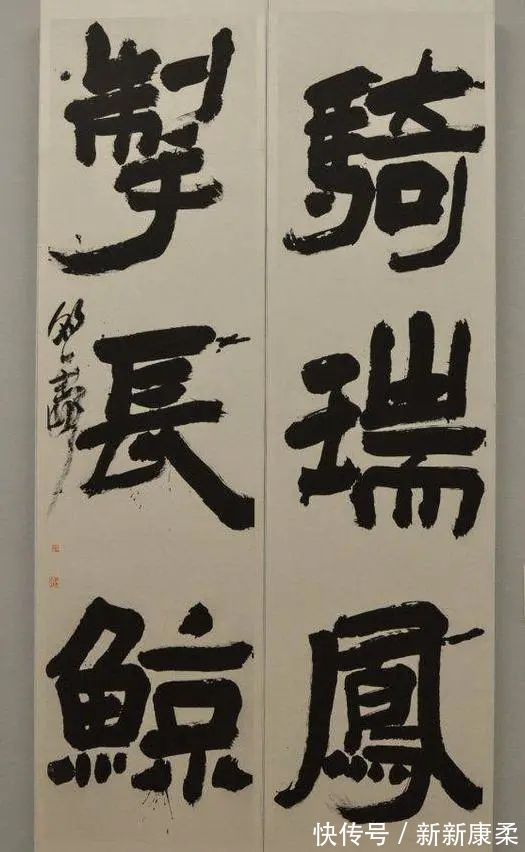 騎瑞鳳
掣長鯨
快传号 / 新新康柔